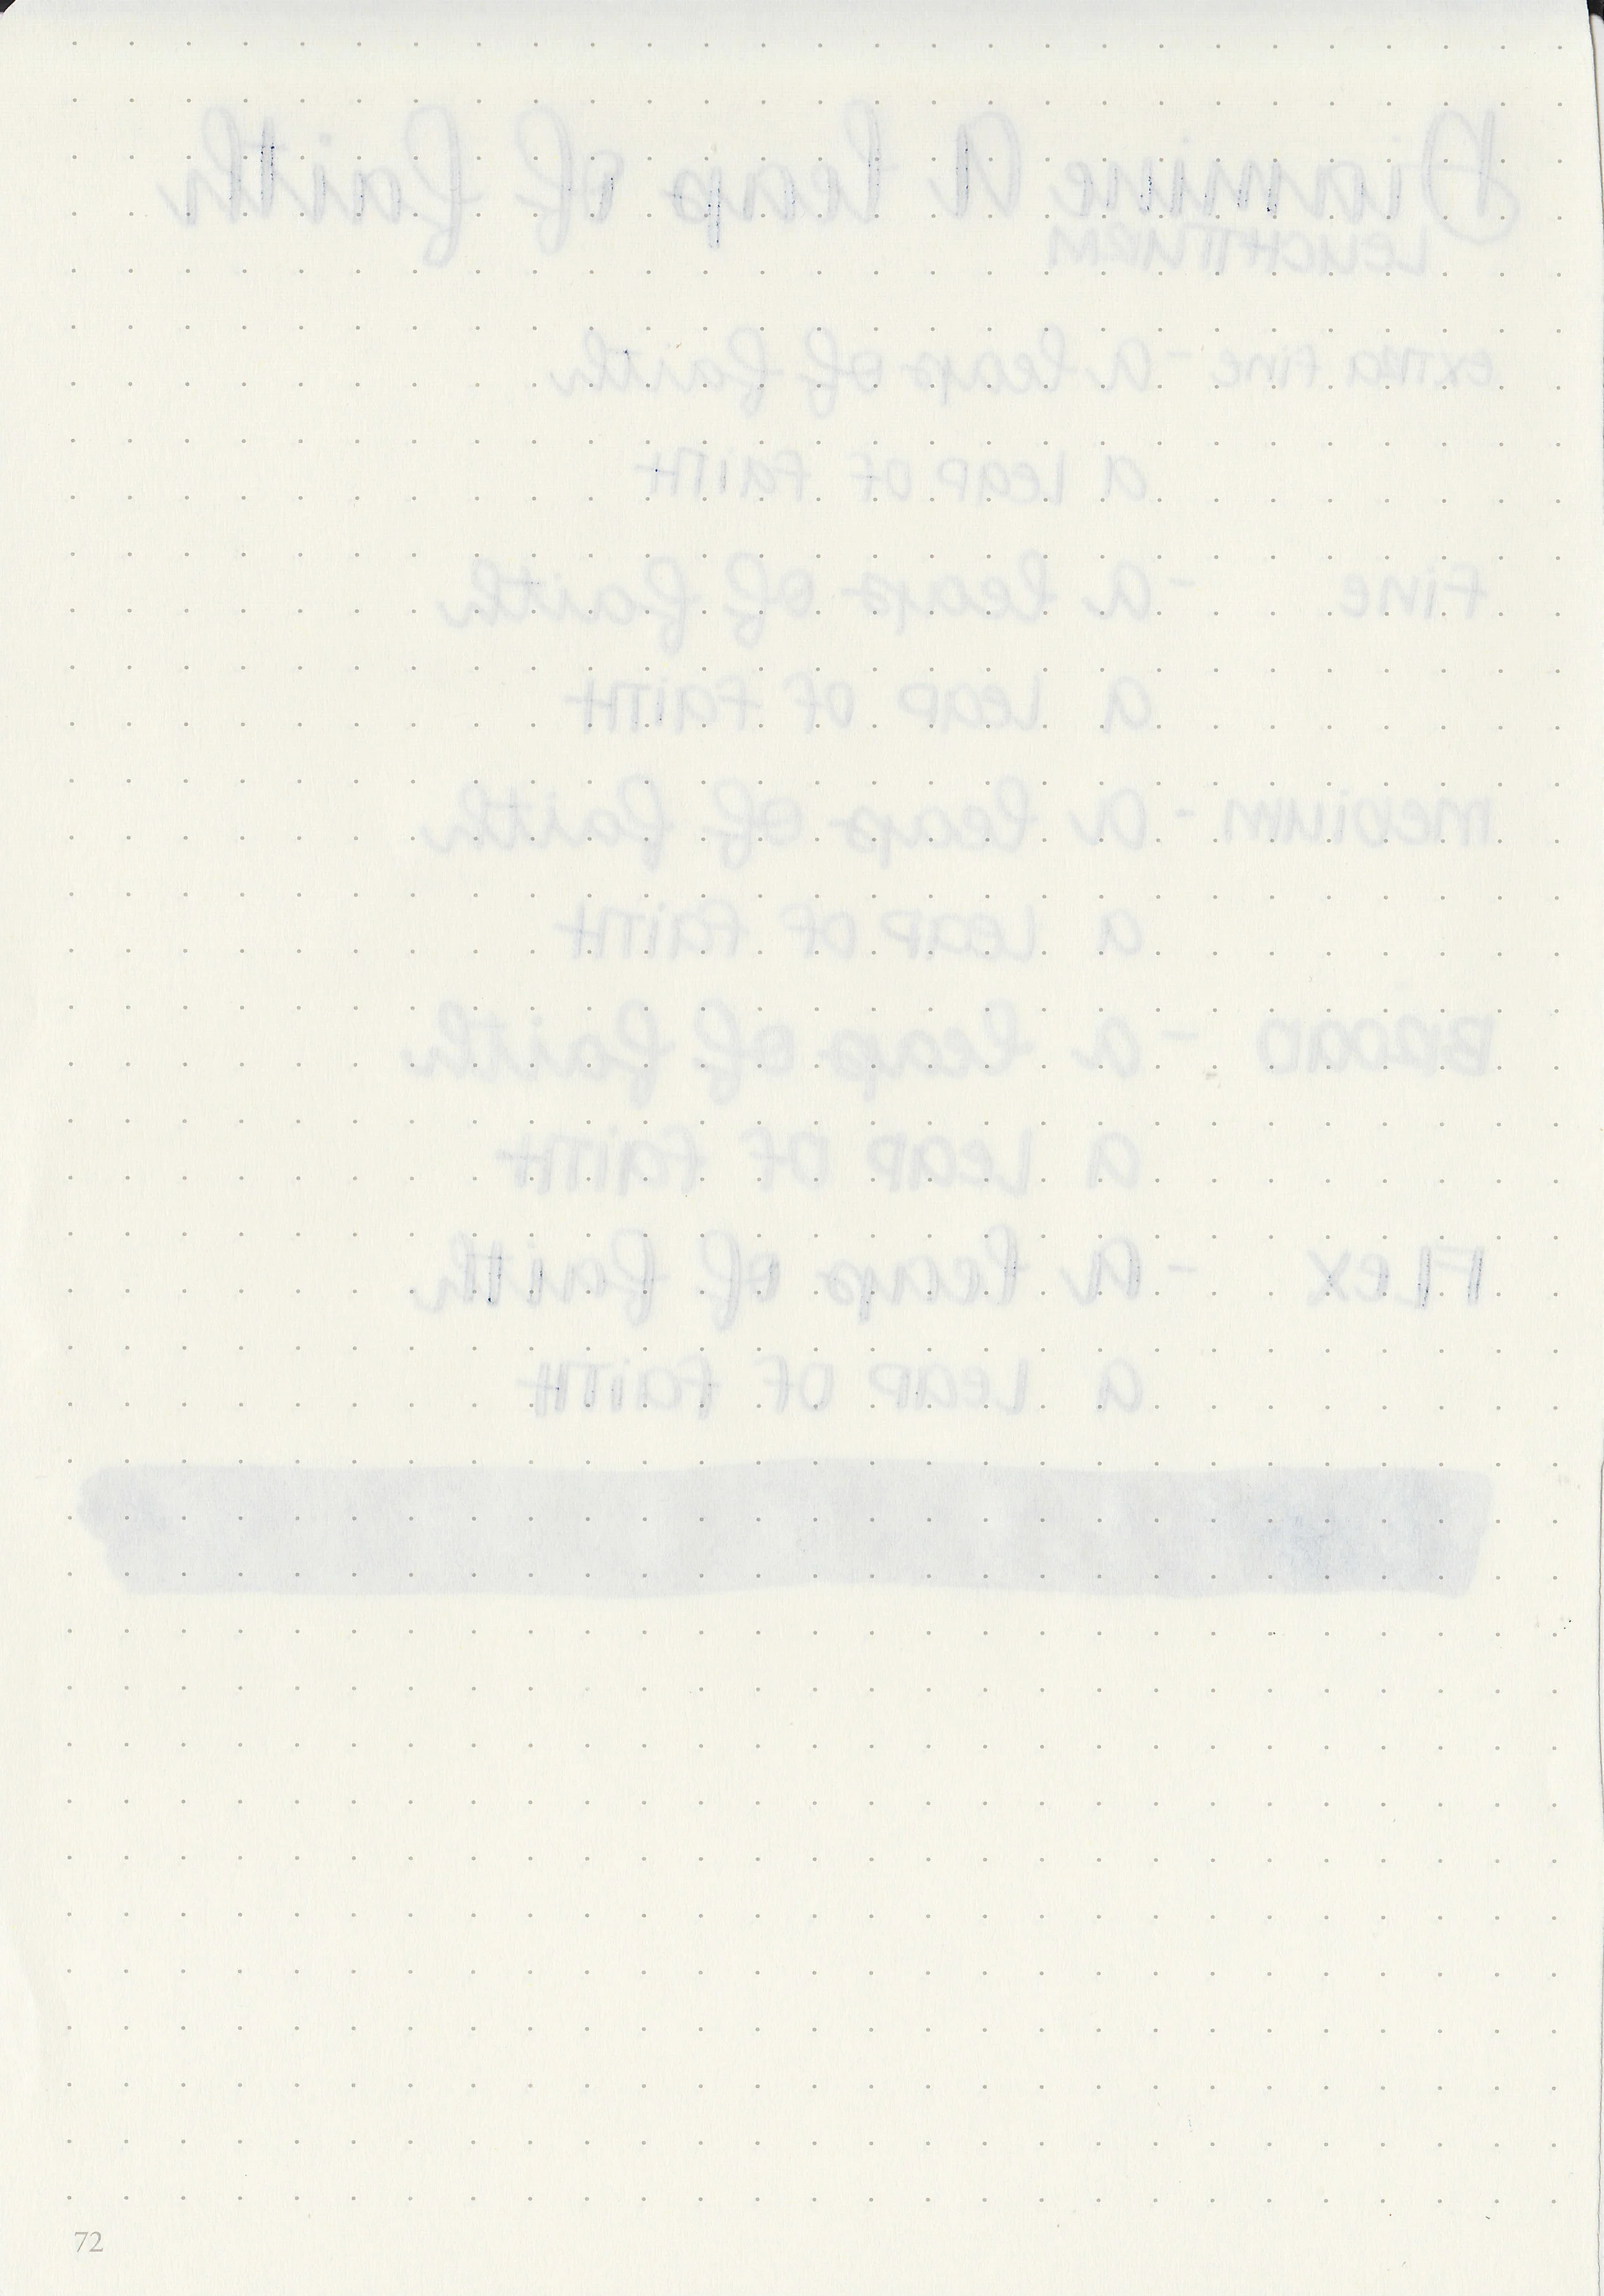 Diamine A leap of faith
LEUCHTTURM
extra fine - a leap of faith
a leap of faith
fine - a leap of faith
a leap of faith
medium - a leap of faith
a leap of faith
Broad - a leap of faith
a leap of faith
Flex - a leap of faith
a leap of faith
72